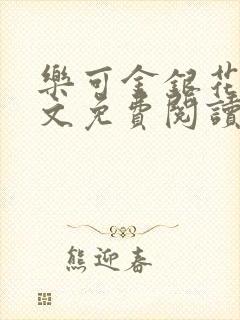 樂可金銀花
文免費閱讀
熊迎春